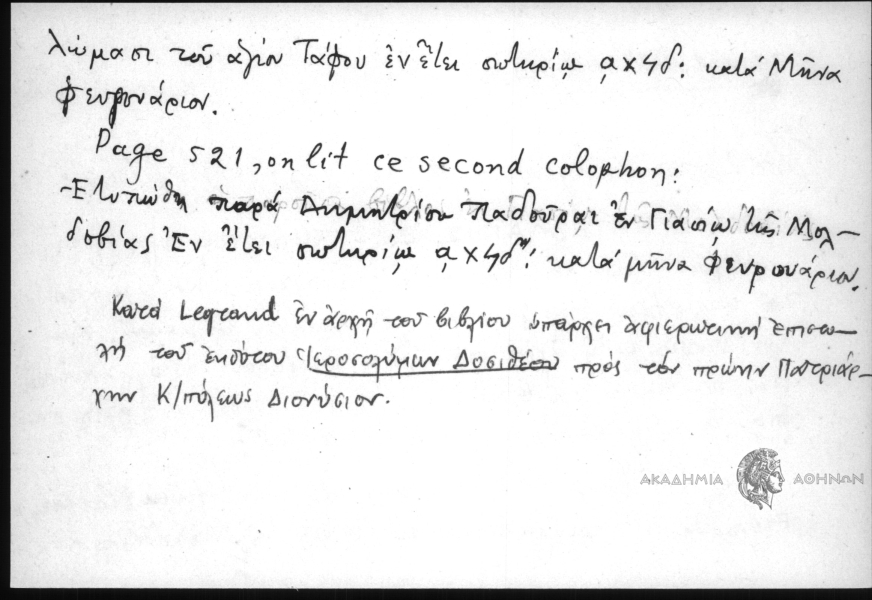 λώμασι τοῦ ἁγίου Τάφου ἐν ἔτει σωτηρίῳ αχϟδ: κατὰ Μῆνα
φευρουάριον.
Page 521, on lit ce second colophon:
-Ετυπώθη παρὰ Δημητρίου Παδοῦραι ἐν Γιασίῳ τῆς Μολ-
δοβίας Ἐν ἔτει σωτηρίῳ αχϟδῳ: κατὰ μῆνα Φευρουάριον.
Κατὰ Legrand ἐν ἀρχῇ τοῦ βιβλίου ὑπάρχει ἀφιερωτικὴ ἐπιστο-
λὴ τοῦ ἐκδότου Ἱεροσολύμων Δοσιθέου πρὸς τὸν πρώην Πατριάρ-
χην Κ/πόλεως Διονύσιον.
ΑΚΑΔΗΜΙΑ ΑΘΗΝΩΝ